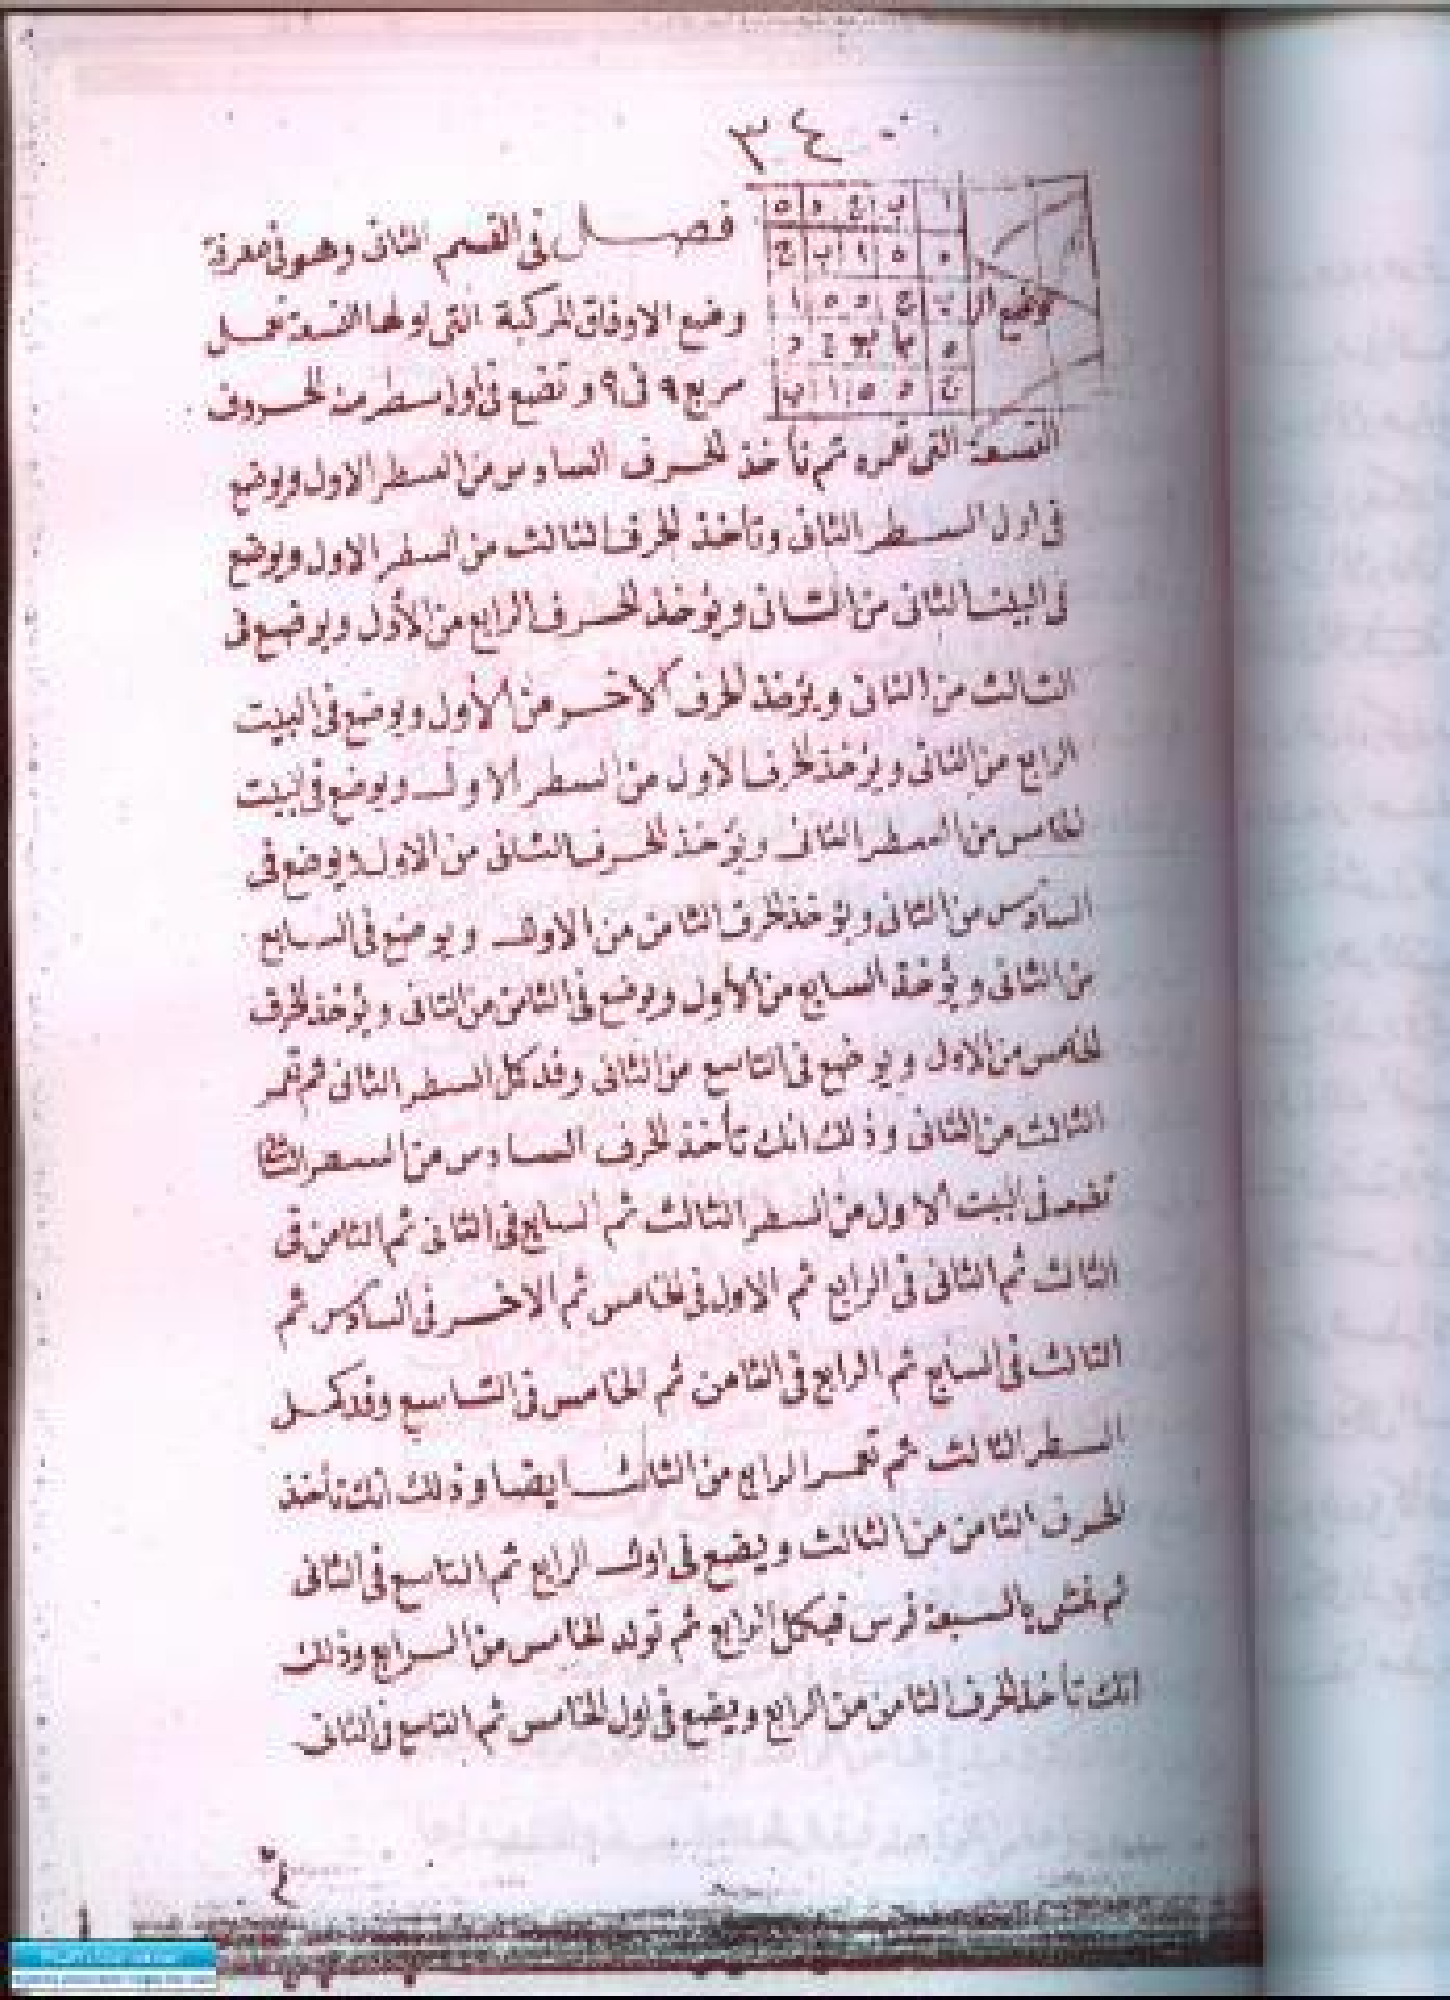 ٣٤
ا ب ج د ه
د ه ا ب ج
ب ج د ه ا
ه ا ب ج د
ج د ه ا ب
فصل في القسم الثاني وهو في معرفة
وضع الاوفاق المركبة التي اولها التسعة تعمل
مربع ٩ في ٩ وتضع في اول سطر من الحروف
التسعة التي تعمره ثم تأخذ الحرف السادس من السطر الاول ويوضع
في اول السطر الثاني وتأخذ الحرف الثالث من السطر الاول ويوضع
في البيت الثاني من الثاني ويؤخذ الحرف الرابع من الأول ويوضع في
الثالث من الثاني ويؤخذ الحرف الاخر من الأول ويوضع في البيت
الرابع من الثاني ويؤخذ الحرف الاول من السطر الاول ويوضع في البيت
الخامس من السطر الثاني ويؤخذ الحرف الثاني من الاول ويوضع في
السادس من الثاني ويؤخذ الحرف الثامن من الاول ويوضع في السابع
من الثاني ويؤخذ السابع من الأول ويوضع في الثامن من الثاني ويؤخذ الحرف
الخامس من الاول ويوضع في التاسع من الثاني وقد كمل السطر الثاني ثم تعمر
الثالث من الثاني وذلك انك تأخذ الحرف السادس من السطر الثاني
تضعه في البيت الاول من السطر الثالث ثم السابع في الثاني ثم الثامن في
الثالث ثم الثاني في الرابع ثم الاول في الخامس ثم الاخر في السادس ثم
الثالث في السابع ثم الرابع في الثامن ثم الخامس في التاسع وقد كمل
السطر الثالث ثم تعمر الرابع من الثالث ايضا وذلك انك تأخذ
الحرف الثامن من الثالث ويضع في اول الرابع ثم التاسع في الثاني
ثم تمشي بالسبعة فرس فيكمل الرابع ثم تولد الخامس من الرابع وذلك
انك تأخذ الحرف الثامن من الرابع ويضع في اول الخامس ثم التاسع في الثاني